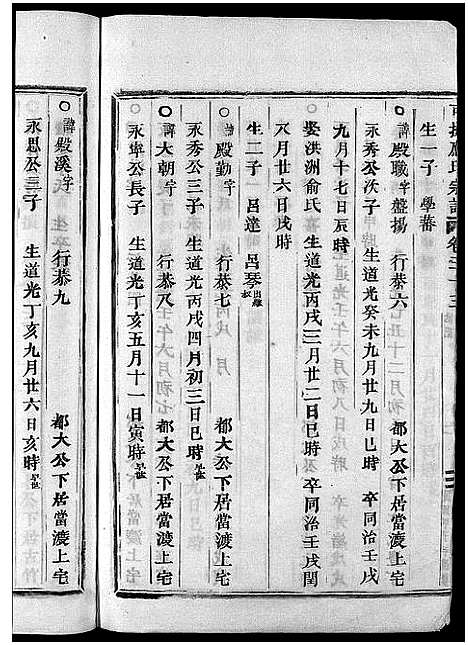 生一子 學蕃
○諱殿職字盤揚 行恭六 都大公下居當渡上宅
永秀公次子 生道光癸未九月廿九日巳時 卒同治壬戌
九月十七日辰時
娶洪洲俞氏 生道光丙戌三月廿二日巳時 卒同治壬戌閏
八月廿六日戌時
生二子 呂達 呂琴
○諱殿勤字 行恭七 都大公下居當渡上宅
永秀公三子 生道光丙戌四月初三日巳時 早世
○諱大朝字 行恭八 都大公下居當渡上宅
永卑公長子 生道光丁亥五月十一日寅時 早世
○諱殿溪字 行恭九 都大公下居當渡上宅
永思公三子 生道光丁亥九月廿六日亥時 早世